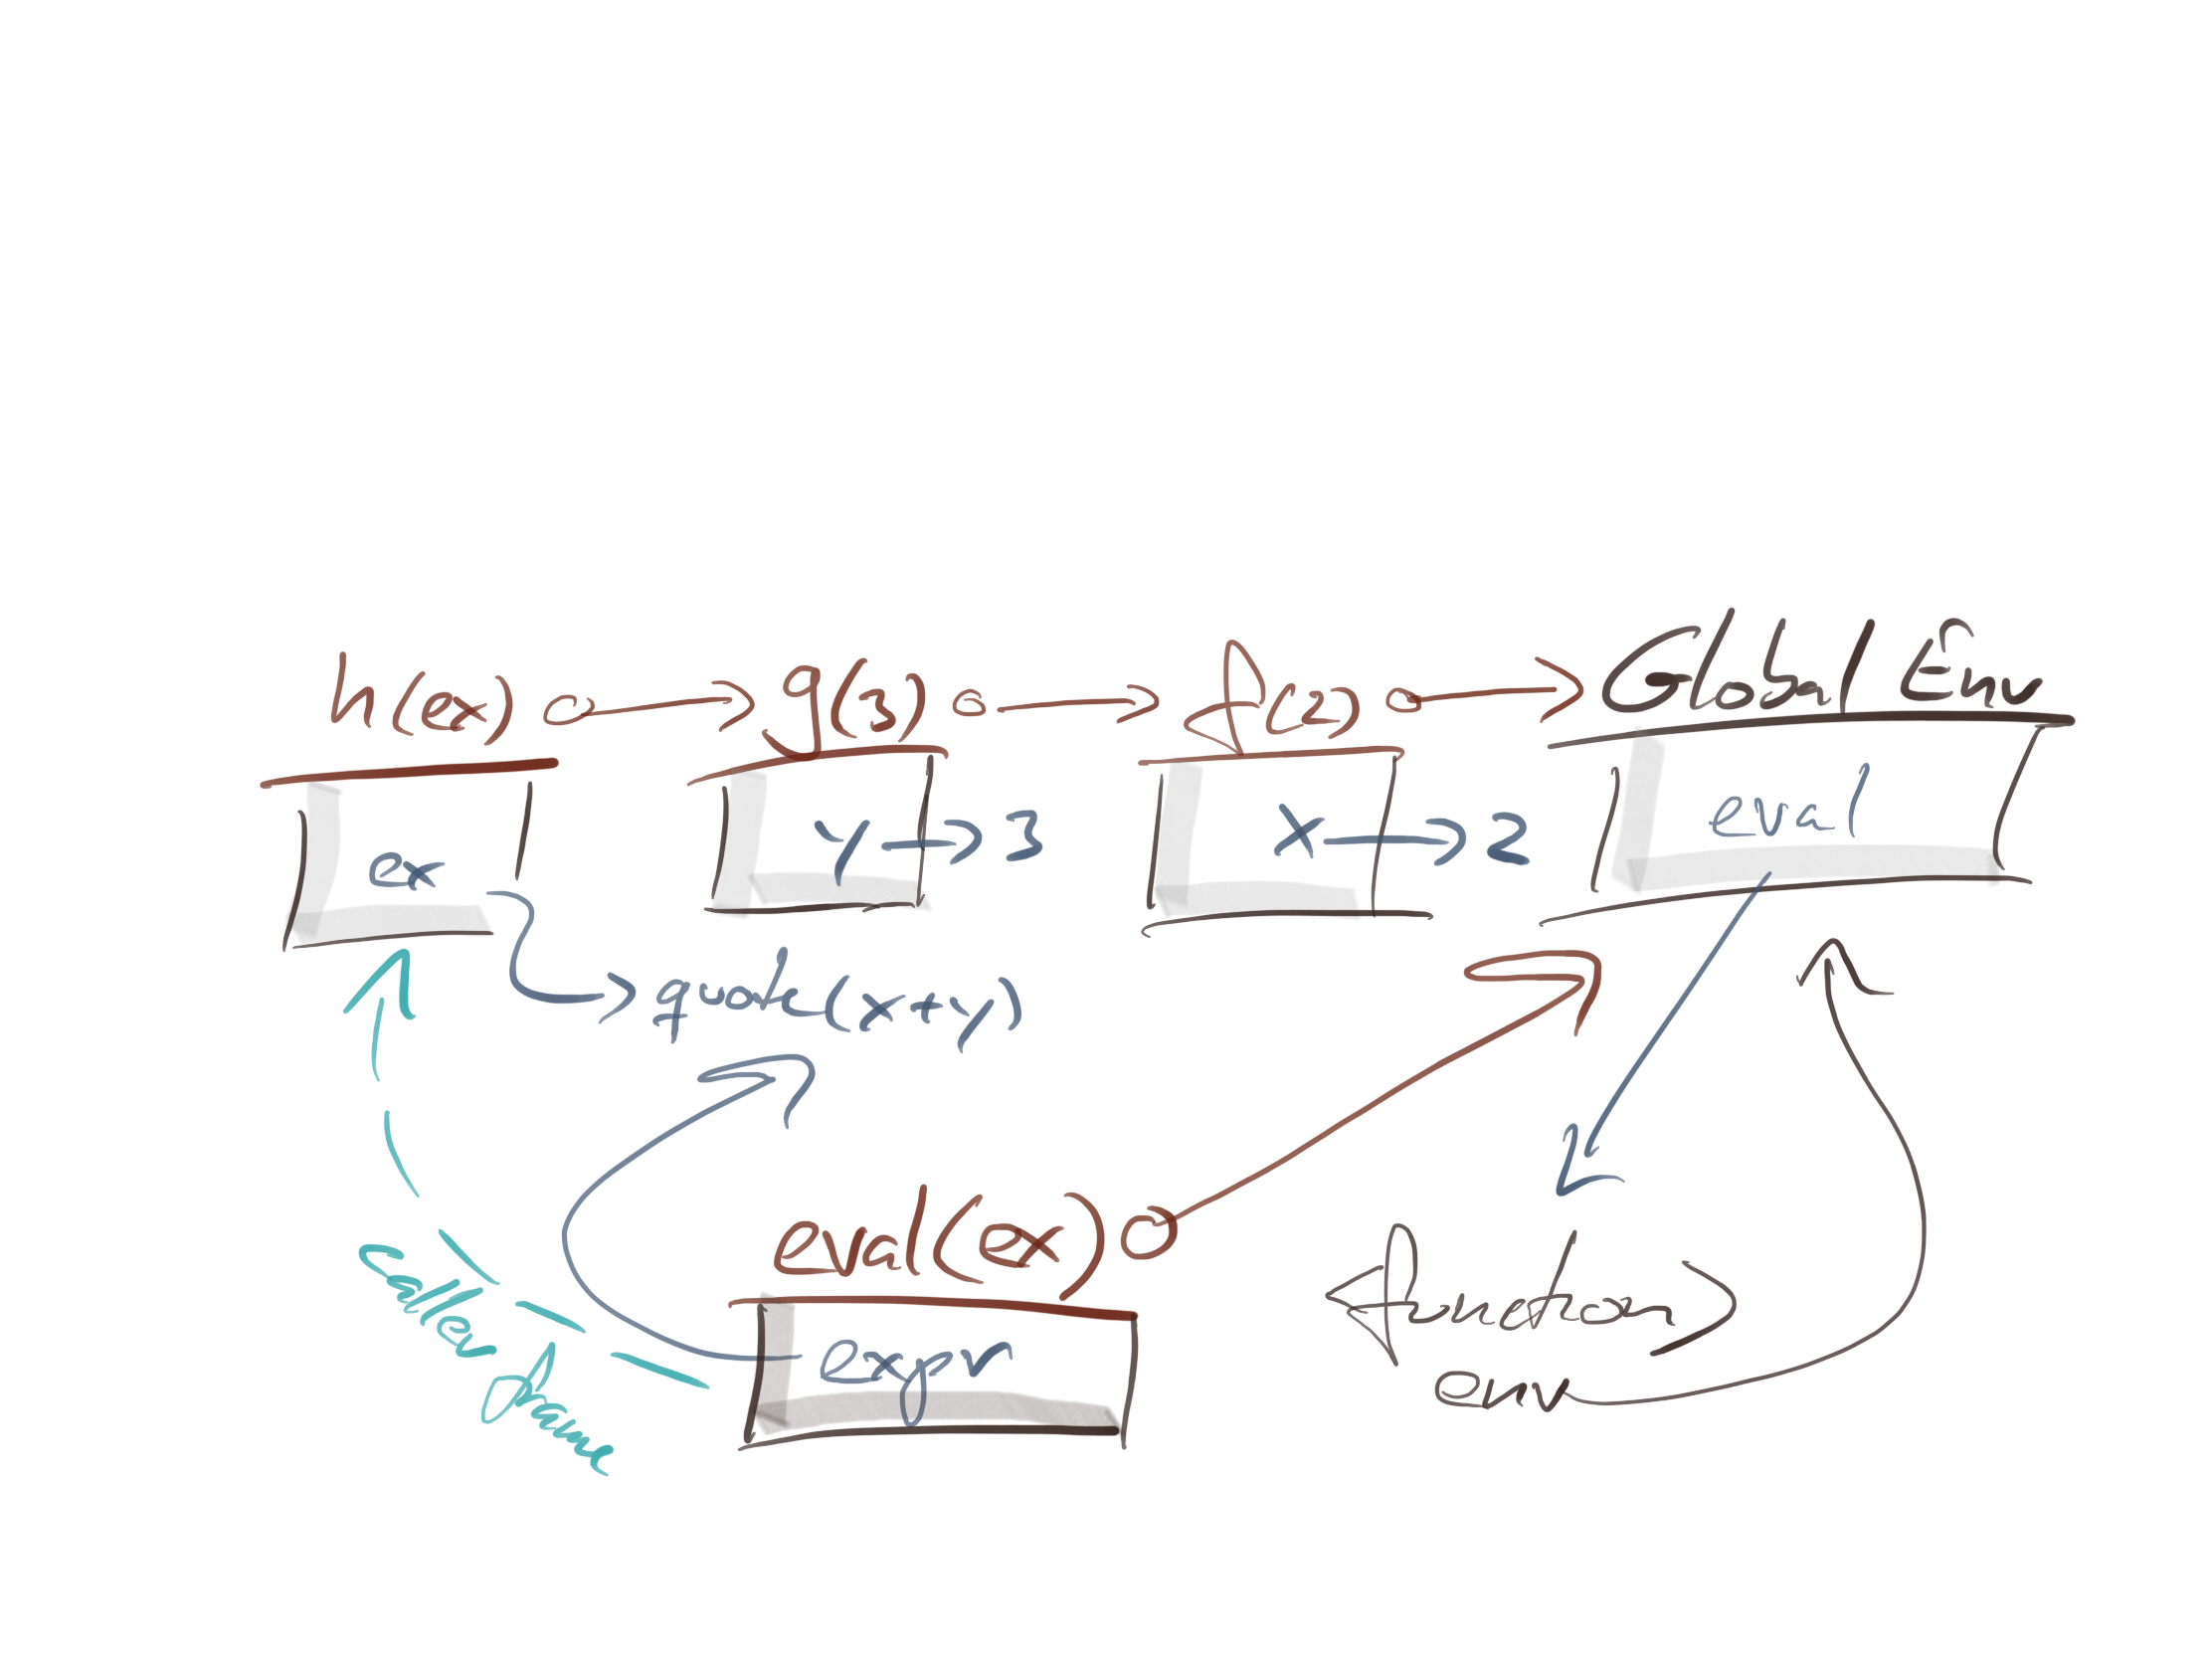 h(ex) g(3) f(2) Global Env
ex y 3 x 2 eval
quote(x+y)
eval(ex)
expr
caller frame
<function>
env